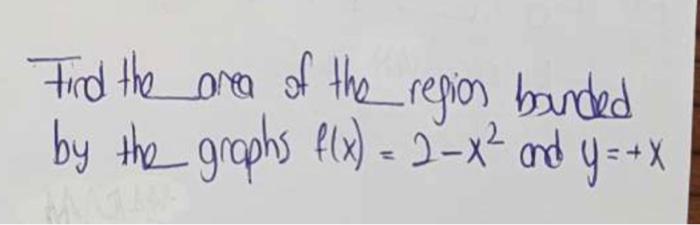 Find the area of the region bounded
by the graphs f(x) = 2-x² and y=+x